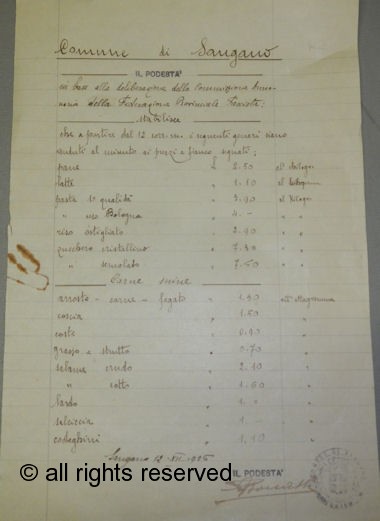 Comune di Sangano
IL PODESTÀ
in base alla deliberazione della Commissione Anno-
naria della Federazione Provinciale Fascista:
stabilisce
che a partire dal 12 corr. m. i seguenti generi siano
venduti al minuto ai prezzi a fianco segnati;
pane £ 2.50 al chilogr.
latte " 1.10 al
pasta 1ª qualità " 3.90 al Kilogr.
" uso Bologna " 4.- " "
riso ostigliato " 2.90 " "
zucchero cristallino " 7.30 " "
" semolato " 7.50 " "
Carne suina
arrosto - carne - fegato " 1.30 all'
coscia " 1.50 "
coste " 0.90 "
grasso e strutto " 0.70 "
salame crudo " 2.10 "
" cotto " 1.60 "
lardo " 1. - "
salciccia " 1. - "
coteghini " 1,10 "
Sangano 12 - XII - 1926
IL PODESTÀ
© all rights reserved